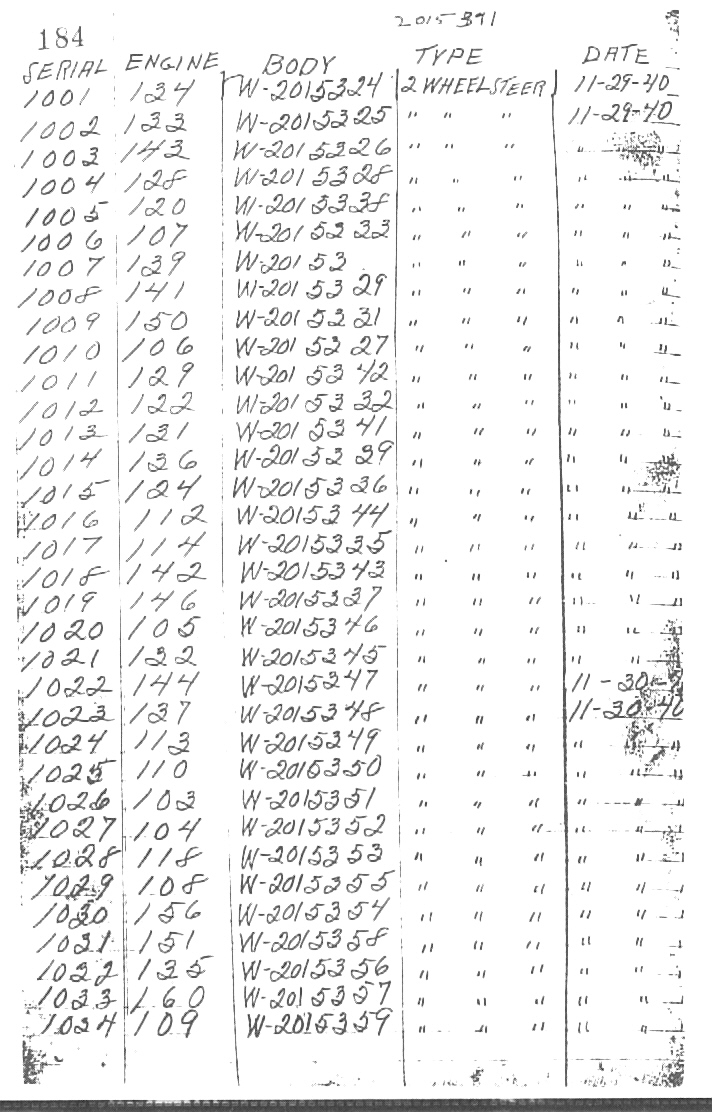 2015391
184
SERIAL ENGINE BODY TYPE DATE
1001 134 W-2015324 2 WHEEL STEER 11-29-40
1002 133 W-2015325 " " " 11-29-40
1003 143 W-2015326 " " " " " "
1004 128 W-2015328 " " " " " "
1005 120 W-2015338 " " " " " "
1006 107 W-2015333 " " " " " "
1007 139 W-20153 " " " " " "
1008 141 W-2015329 " " " " " "
1009 150 W-2015331 " " " " " "
1010 106 W-2015327 " " " " " "
1011 129 W-2015342 " " " " " "
1012 122 W-2015332 " " " " " "
1013 131 W-2015341 " " " " " "
1014 136 W-2015339 " " " " " "
1015 124 W-2015336 " " " " " "
1016 112 W-2015344 " " " " " "
1017 114 W-2015335 " " " " " "
1018 142 W-2015343 " " " " " "
1019 146 W-2015337 " " " " " "
1020 105 W-2015346 " " " " " "
1021 132 W-2015345 " " " " " "
1022 144 W-2015347 " " " 11-30-
1023 137 W-2015348 " " " 11-30-40
1024 113 W-2015349 " " " " " "
1025 110 W-2015350 " " " " " "
1026 103 W-2015351 " " " " " "
1027 104 W-2015352 " " " " " "
1028 118 W-2015353 " " " " " "
1029 108 W-2015355 " " " " " "
1030 156 W-2015354 " " " " " "
1031 151 W-2015358 " " " " " "
1032 135 W-2015356 " " " " " "
1033 160 W-2015357 " " " " " "
1034 109 W-2015359 " " " " " "